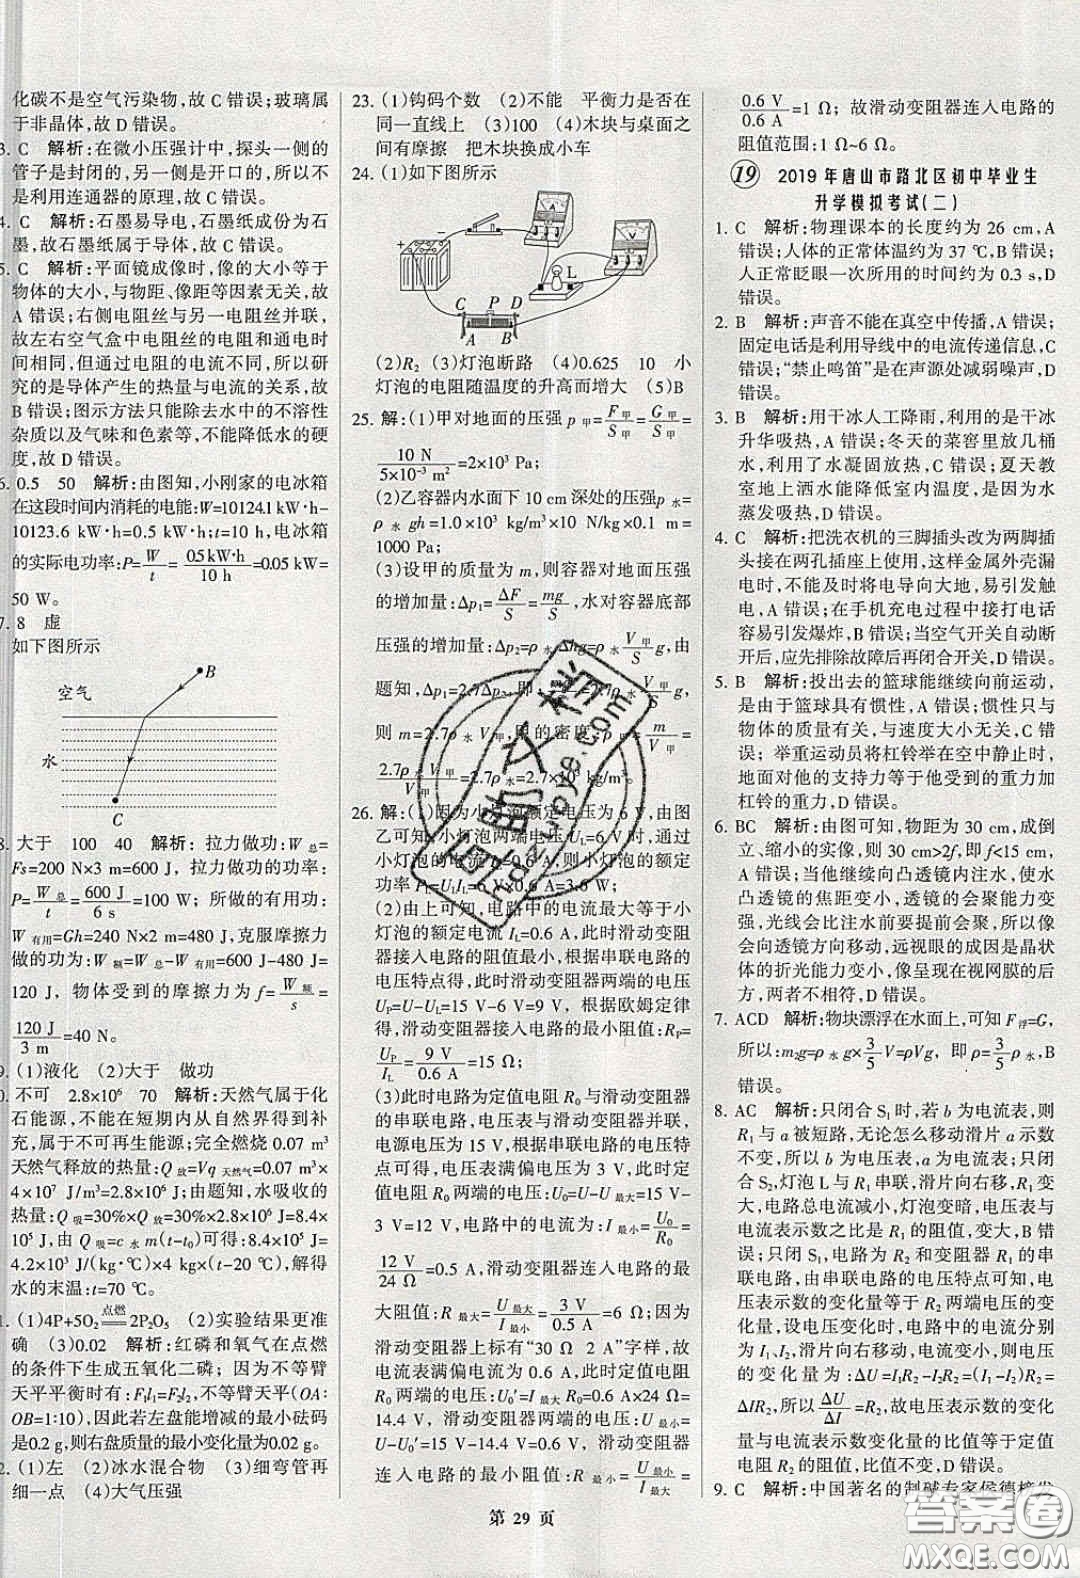 化碳不是空气污染物,故C错误;玻璃属
于非晶体,故D错误。
3. C 解析:在微小压强计中,探头一侧的
管子是封闭的,另一侧是开口的,所以没有
利用连通器的原理,故C错误。
4. C 解析:石墨易导电,石墨纸成份为石
墨,故石墨纸属于导体,故C错误。
5. C 解析:平面镜成像时,像的大小等于
物体的大小,与物距、像距等因素无关,故
A错误;右侧电阻丝与另一电阻丝并联,
故左右空气盒中电阻丝的电阻和通电时
间相同,但通过电阻的电流不同,所以研
究的是导体产生的热量与电流的关系,故
B错误;图示方法只能除去水中的不溶性
杂质以及气味和色素等,不能降低水的硬
度,故D错误。
6. 0.5 50 解析:由图知,小刚家的电冰箱
在这段时间内消耗的电能:W=10124.1 kW·h-
10123.6 kW·h=0.5 kW·h;t=10 h,电冰箱
的实际电功率:P=W/t=0.5 kW·h/10 h=0.05 kW=
50 W。
7. 8 虚
如下图所示
B
空气
水
C
8. 大于 100 40 解析:拉力做功:W总=
Fs=200 N×3 m=600 J,拉力做功的功率:
P=W/t=600 J/6 s=100 W;所做的有用功:
W有用=Gh=240 N×2 m=480 J,克服摩擦力
做的功为:W额=W总-W有用=600 J-480 J=
120 J,物体受到的摩擦力为f=W额/s=
120 J/3 m=40 N。
9. (1)液化 (2)大于 做功
0. 不可 2.8×10⁶ 70 解析:天然气属于化
石能源,不能在短期内从自然界得到补
充,属于不可再生能源;完全燃烧0.07 m³
天然气释放的热量:Q放=Vq天然气=0.07 m³×
4×10⁷ J/m³=2.8×10⁶J。由题知,水吸收的
热量:Q吸=30%×Q放=30%×2.8×10⁶J=8.4×
10⁵J,由Q吸=c水m(t-t₀)可得:8.4×10⁵J=
4.2×10³ J/(kg·℃)×4kg×(t-20℃),解得
水的末温:t=70℃。
1. (1)4P+5O₂ 点燃 2P₂O₅ (2)实验结果更准
确 (3)0.02 解析:红磷和氧气在点燃
的条件下生成五氧化二磷;因为不等臂
天平平衡时有:F₁l₁=F₂l₂,不等臂天平(OA:
OB=1:10),因此若左盘能增减的最小砝码
是0.2 g,则右盘质量的最小变化量为0.02 g。
2. (1)左 (2)冰水混合物 (3)细弯管再
细一点 (4)大气压强
23. (1)钩码个数 (2)不能 平衡力是否在
同一直线上 (3)100 (4)木块与桌面之
间有摩擦 把木块换成小车
24. (1)如下图所示
+ - L
C P D
A B
(2)R₂ (3)灯泡断路 (4)0.625 10 小
灯泡的电阻随温度的升高而增大 (5)B
25. 解:(1)甲对地面的压强p甲=F甲/S甲=G甲/S甲=
10 N/5×10⁻³ m²=2×10³ Pa;
(2)乙容器内水面下10 cm深处的压强p水=
ρ水gh=1.0×10³ kg/m³×10 N/kg×0.1 m=
1000 Pa;
(3)设甲的质量为m,则容器对地面压强
的增加量:Δp₁=ΔF/S=mg/S,水对容器底部
压强的增加量:Δp₂=ρ水Δhg=ρ水V甲/S g,由
题知,Δp₁=2.7Δp₂,即:mg/S=2.7ρ水V甲/S g,
则m=2.7ρ水V甲,甲的密度:ρ甲=m/V甲=
2.7ρ水V甲/V甲=2.7ρ水=2.7×10³ kg/m³。
26. 解:(1)因为小灯泡额定电压为6 V,由图
乙可知,小灯泡两端电压U_L=6 V时,通过
小灯泡的电流I_L=0.6 A,则小灯泡的额定
功率P_L=U_LI_L=6 V×0.6 A=3.6 W;
(2)由上可知,电路中的电流最大等于小
灯泡的额定电流I_L=0.6 A,此时滑动变阻
器接入电路的阻值最小,根据串联电路的
电压特点可得,此时滑动变阻器两端的电压
U_P=U-U_L=15 V-6 V=9 V,根据欧姆定律
得,滑动变阻器接入电路的最小阻值:R_P=
U_P/I_L=9 V/0.6 A=15 Ω;
(3)此时电路为定值电阻R₀与滑动变阻器
的串联电路,电压表与滑动变阻器并联,
电源电压为15 V,根据串联电路的电压特点
可得,电压表满偏电压为3 V时,此时定
值电阻R₀两端的电压:U₀=U-U最大=15 V-
3 V=12 V,电路中的电流为:I最小=U₀/R₀=
12 V/24 Ω=0.5 A,滑动变阻器连入电路的最
大阻值:R最大=U最大/I最小=3 V/0.5 A=6 Ω;因为
滑动变阻器上标有“30 Ω 2 A”字样,故
电流表满偏电流为0.6 A时,此时定值电阻
R₀两端的电压:U₀′=I最大R₀=0.6 A×24 Ω=
14.4 V,滑动变阻器两端的电压:U最小=
U-U₀′=15 V-14.4 V=0.6 V,滑动变阻器
连入电路的最小阻值:R最小=U最小/I最大=
0.6 V/0.6 A=1 Ω;故滑动变阻器连入电路的
阻值范围:1 Ω~6 Ω。
19 2019年唐山市路北区初中毕业生
升学模拟考试(二)
1. C 解析:物理课本的长度约为26 cm,A
错误;人体的正常体温约为37 ℃,B错误;
人正常眨眼一次所用的时间约为0.3 s,D
错误。
2. B 解析:声音不能在真空中传播,A错误;
固定电话是利用导线中的电流传递信息,C
错误;“禁止鸣笛”是在声源处减弱噪声,D
错误。
3. B 解析:用干冰人工降雨,利用的是干冰
升华吸热,A错误;冬天的菜窖里放几桶
水,利用了水凝固放热,C错误;夏天教
室地上洒水能降低室内温度,是因为水
蒸发吸热,D错误。
4. C 解析:把洗衣机的三脚插头改为两脚插
头接在两孔插座上使用,这样金属外壳漏
电时,不能将电导向大地,易引发触
电,A错误;在手机充电过程中接打电话
容易引发爆炸,B错误;当空气开关自动断
开后,应先排除故障后再闭合开关,D错误。
5. B 解析:投出去的篮球能继续向前运动,
是由于篮球具有惯性,A错误;惯性只与
物体的质量有关,与速度大小无关,C错
误;举重运动员将杠铃举在空中静止时,
地面对他的支持力等于他受到的重力加
杠铃的重力,D错误。
6. BC 解析:由图可知,物距为30 cm,成倒
立、缩小的实像,则30 cm>2f,即f<15 cm,
A错误;当他继续向凸透镜内注水,使水
凸透镜的焦距变小,透镜的会聚能力变
强,光线会比注水前要提前会聚,所以像
会向透镜方向移动,远视眼的成因是晶状
体的折光能力变小,像呈现在视网膜的后
方,两者不相符,D错误。
7. ACD 解析:物块漂浮在水面上,可知F浮=G,
所以:m₂g=ρ水g×3/5V=ρgV,即ρ=3/5ρ水,B
错误。
8. AC 解析:只闭合S₁时,若b为电流表,则
R₁与a被短路,无论怎么移动滑片a示数
不变,所以a、b都为电压表,A错误;只闭
合S₂,灯泡L与R₁串联,滑片向右移,R₁变
大,电路总电流减小,灯泡变暗,电压表与
电流表示数之比是R₁的阻值,变大,B错
误;只闭S₁,电路为R₂和变阻器R₁的串
联电路,由串联电路的电压特点可知,电
压表示数的变化量等于R₂两端电压的变化
量,设电压变化前后,电路中的电流分别
为I₁、I₂,电压的变化量为:ΔU=I₁R₂-I₂R₂=(I₁-I₂)R₂=
ΔIR₂,所以ΔU/ΔI=R₂,电压表示数的变化
量与电流表示数变化量的比值等于定值
电阻R₂的阻值,比值不变,D错误。
9. C 解析:中国著名的制碱专家侯德榜发
第29页
答案圈
MXQE.COM